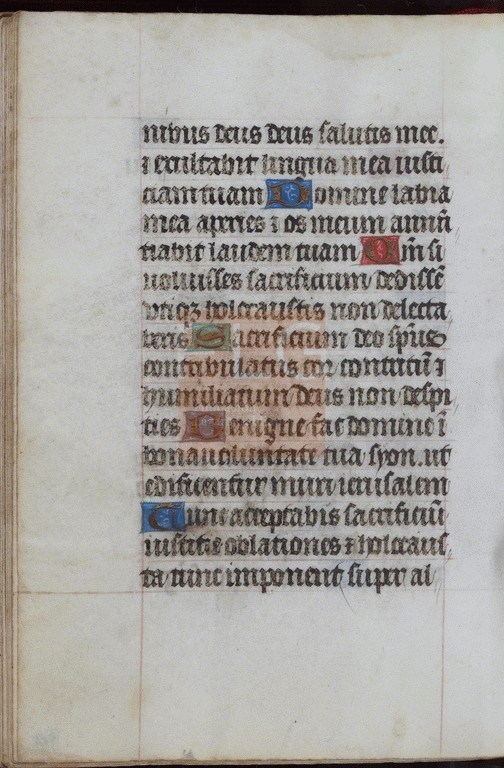 nibus deus deus salutis mee.
⁊ exultabit lingua mea iusti
ciam tuam Domine labia
mea aperies ⁊ os meum annū
tiabit laudem tuam Qm̄ si
uoluisses sacrificium dedissē
vtiqꝫ holocaustis non delecta
beris Sacrificium deo sp̄us
contribulatus cor contritū ⁊
humiliatum deus non despi
cies Benigne fac domine ī
bona uoluntate tua syon. ut
edificentur muri ierusalem
Tunc acceptabis sacrificiū
iusticie oblationes ⁊ holocaus
ta tunc imponent super al